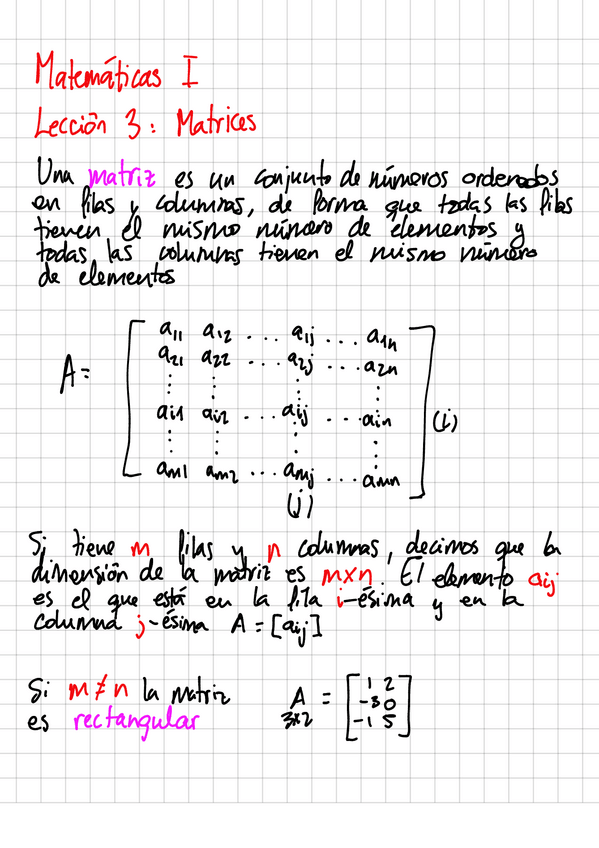 Matemáticas I
Lección 3: Matrices
Una matriz es un conjunto de números ordenados
en filas y columnas, de forma que todas las filas
tienen el mismo número de elementos y
todas las columnas tienen el mismo número
de elementos
a11 a12 ... aij ... a1n
a21 a22 ... a2j ... a2n
⋮ ⋮ ⋮ ⋮
A= ai1 ai2 ... aij ... ain (i)
⋮ ⋮ ⋮ ⋮
am1 am2 ... amj ... amn
(j)
Si tiene m filas y n columnas, decimos que la
dimensión de la matriz es mxn. El elemento aij
es el que está en la fila i-ésima y en la
columna j-ésima A = [aij]
Si m ≠ n la matriz
es rectangular
A =
3x2
1 2
-3 0
-1 5